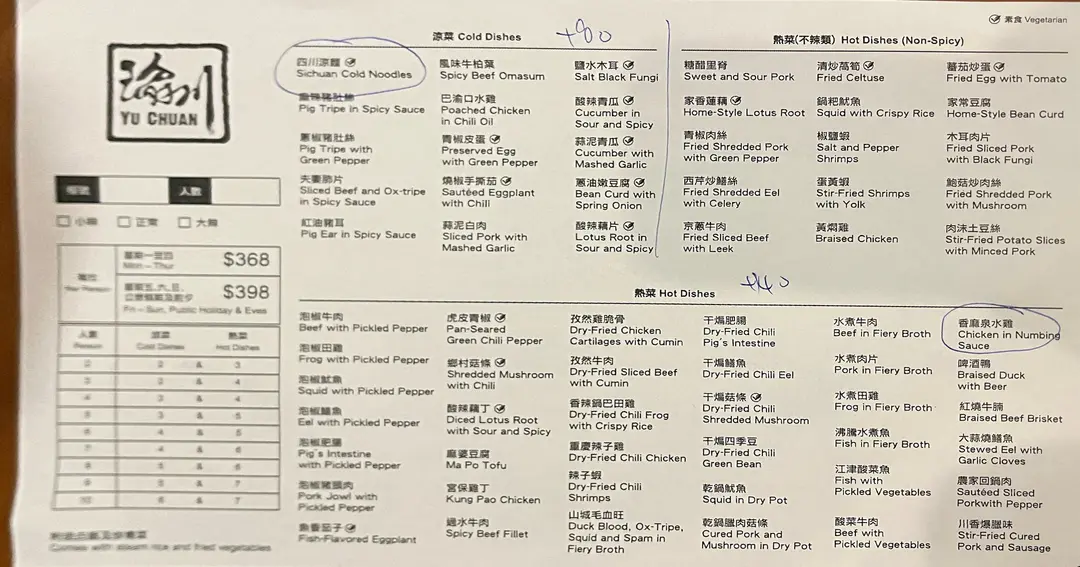 素食 Vegetarian
瑜川
YU CHUAN
人數
小辣
正常
大辣
星期一至四
Mon – Thur
$368
星期五,六,日,
公眾假期及前夕
Fri – Sun, Public Holiday & Eves
$398
Per Person
人數 涼菜 熱菜
Person Cold Dishes Hot Dishes
2 2 & 3
3 2 & 4
4 3 & 4
5 3 & 5
6 4 & 5
7 4 & 6
8 5 & 6
9 5 & 7
10 6 & 7
Comes with steam rice and fried vegetables
涼菜 Cold Dishes
+80
四川涼麵
Sichuan Cold Noodles
Pig Tripe in Spicy Sauce
蔥椒豬肚絲
Pig Tripe with
Green Pepper
夫妻肺片
Sliced Beef and Ox-tripe
in Spicy Sauce
紅油豬耳
Pig Ear in Spicy Sauce
風味牛柏葉
Spicy Beef Omasum
巴渝口水雞
Poached Chicken
in Chili Oil
青椒皮蛋
Preserved Egg
with Green Pepper
燒椒手撕茄
Sautéed Eggplant
with Chill
蒜泥白肉
Sliced Pork with
Mashed Garlic
鹽水木耳
Salt Black Fungi
酸辣青瓜
Cucumber in
Sour and Spicy
蒜泥青瓜
Cucumber with
Mashed Garlic
蔥油嫩豆腐
Bean Curd with
Spring Onion
酸辣藕片
Lotus Root in
Sour and Spicy
熱菜(不辣類) Hot Dishes (Non-Spicy)
糖醋里脊
Sweet and Sour Pork
家香蓮藕
Home-Style Lotus Root
青椒肉絲
Fried Shredded Pork
with Green Pepper
西芹炒鱔絲
Fried Shredded Eel
with Celery
京蔥牛肉
Fried Sliced Beef
with Leek
清炒萵筍
Fried Celtuse
鍋粑魷魚
Squid with Crispy Rice
椒鹽蝦
Salt and Pepper
Shrimps
蛋黃蝦
Stir-Fried Shrimps
with Yolk
黃燜雞
Braised Chicken
蕃茄炒蛋
Fried Egg with Tomato
家常豆腐
Home-Style Bean Curd
木耳肉片
Fried Sliced Pork
with Black Fungi
鮑菇炒肉絲
Fried Shredded Pork
with Mushroom
肉沫土豆絲
Stir-Fried Potato Slices
with Minced Pork
熱菜 Hot Dishes
泡椒牛肉
Beef with Pickled Pepper
泡椒田雞
Frog with Pickled Pepper
泡椒魷魚
Squid with Pickled Pepper
泡椒鱔魚
Eel with Pickled Pepper
泡椒肥腸
Pig's Intestine
with Pickled Pepper
泡椒豬頸肉
Pork Jowl with
Pickled Pepper
魚香茄子
Fish-Flavored Eggplant
虎皮青椒
Pan-Seared
Green Chili Pepper
鄉村菇條
Shredded Mushroom
with Chili
酸辣藕丁
Diced Lotus Root
with Sour and Spicy
麻婆豆腐
Ma Po Tofu
宮保雞丁
Kung Pao Chicken
過水牛肉
Spicy Beef Fillet
孜然雞脆骨
Dry-Fried Chicken
Cartilages with Cumin
孜然牛肉
Dry-Fried Sliced Beef
with Cumin
香辣鍋巴田雞
Dry-Fried Chili Frog
with Crispy Rice
重慶辣子雞
Dry-Fried Chili Chicken
辣子蝦
Dry-Fried Chili
Shrimps
山城毛血旺
Duck Blood, Ox-Tripe,
Squid and Spam in
Fiery Broth
干煸肥腸
Dry-Fried Chili
Pig's Intestine
干煸鱔魚
Dry-Fried Chili Eel
干煸菇條
Dry-Fried Chili
Shredded Mushroom
干煸四季豆
Dry-Fried Chili
Green Bean
乾鍋魷魚
Squid in Dry Pot
乾鍋臘肉菇條
Cured Pork and
Mushroom in Dry Pot
水煮牛肉
Beef in Fiery Broth
水煮肉片
Pork in Fiery Broth
水煮田雞
Frog in Fiery Broth
沸騰水煮魚
Fish in Fiery Broth
江津酸菜魚
Fish with
Pickled Vegetables
酸菜牛肉
Beef with
Pickled Vegetables
香麻泉水雞
Chicken in Numbing
Sauce
啤酒鴨
Braised Duck
with Beer
紅燒牛腩
Braised Beef Brisket
大蒜燒鱔魚
Stewed Eel with
Garlic Cloves
農家回鍋肉
Sautéed Sliced
Porkwith Pepper
川香爆臘味
Stir-Fried Cured
Pork and Sausage